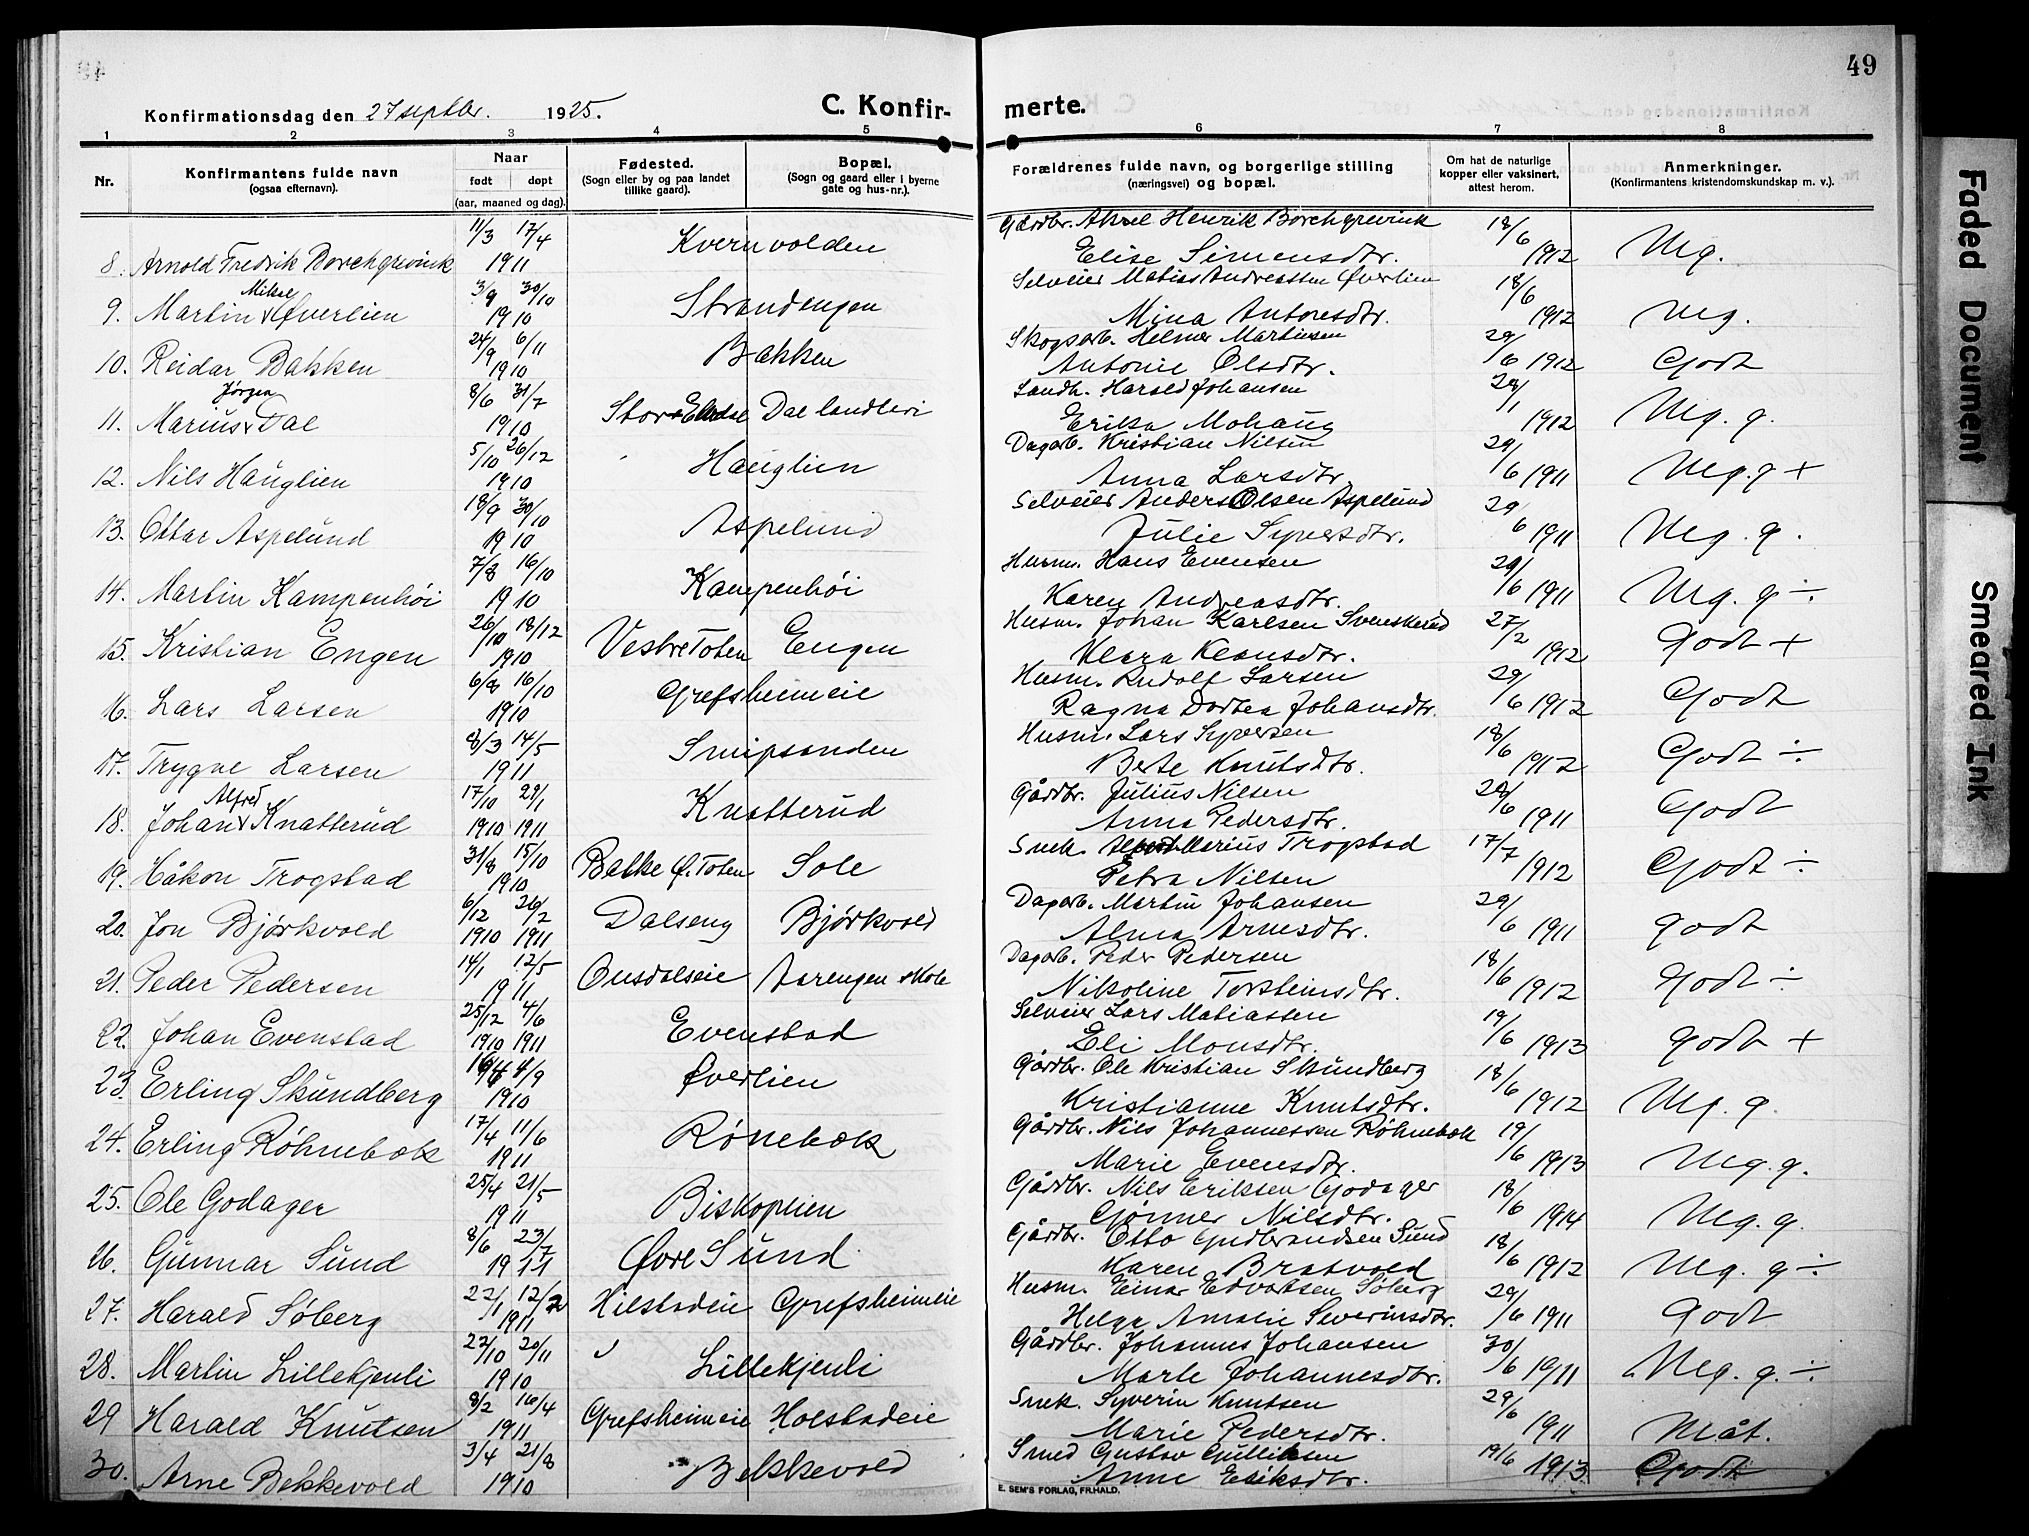 49
Konfirmationsdag den 27 septbr. 1925.
C. Konfirmerte.
1 2 3 4 5 6 7 8
Nr.
Konfirmantens fulde navn
(ogsaa efternavn).
Naar
født døpt
(aar, maaned og dag).
Fødested.
(Sogn eller by og paa landet
tillike gaard).
Bopæl.
(Sogn og gaard eller i byerne
gate og hus-nr.).
Forældrenes fulde navn, og borgerlige stilling
(næringsvei) og bopæl.
Om hat de naturlige
kopper eller vaksinert,
attest herom.
Anmerkninger.
(Konfirmantens kristendomskundskap m. v.).
11/3 17/4 Kvernvolden Gårdbr. Aksel Henrik Borchgrevink 18/6
8. Arnold Fredrik Borchgrevink 1911 Elise Simensdtr. 1912 Mg.
Mikal 3/9 30/10 Strandengen Selveier Matias Andreassen Øverlien 18/6
9. Martin Øverlien 1910 Mina Antonsdtr. 1912 Mg.
24/9 6/11 Bakken Skogsarb. Helmer Martinsen 29/6
10. Reidar Bakken 1910 Antonie Olsdtr. 1912 Godt
Jørgen 8/6 31/7 Stor-Elvdal Dal landhvi Landh. Harald Johansen 29/1
11. Marius Dal 1910 Erika Mohaug 1912 Mg. g.
5/10 26/12 Hauglien Dagarb. Kristian Nilsen 29/6
12. Nils Hauglien 1910 Anna Larsdtr. 1911 Mg. g +
18/9 30/10 Aspelund Selveier Anders Olsen Aspelund 29/6
13. Ottar Aspelund 1910 Julie Syversdtr. 1911 Mg. g.
7/8 16/10 Kampenhøi Husm. Hans Evensen 29/6
14. Martin Kampenhøi 1910 Karen Andreasdtr. 1911 Mg. g ÷
26/10 18/12 Vestre Toten Engen Husm. Johan Karlsen Svenskerud 27/2
15. Kristian Engen 1910 Klara Klausdtr. 1912 Godt +
6/8 16/10 Grefsheimeie Husm. Rudolf Larsen 29/6
16. Lars Larsen 1910 Ragna Dortea Johansdtr. 1912 Godt
8/3 14/5 Snipsanden Husm. Lars Syversen 18/6
17. Trygve Larsen 1911 Berte Knutsdtr. 1912 Godt ÷
Alfred 17/10 29/1 Knatterud Gårdbr. Julius Nilsen 29/6
18. Johan Knatterud 1910 1911 Anna Pedersdtr. 1911 Godt
31/8 15/10 Balke Ø. Toten Sole Snek. Marius Trogstad 17/7
19. Håkon Trogstad 1910 Petra Nilsen 1912 Godt ÷
6/12 26/2 Dalseng Bjørkvold Dagarb. Martin Johansen 29/6
20. Jon Bjørkvold 1910 1911 Alma Arnesdtr. 1911 Godt
14/1 12/5 Onsdalseie Aarengen skole Dagarb. Peder Pedersen 18/6
21. Peder Pedersen 1911 Nikoline Torsteinsdtr. 1912 Godt ÷
25/12 4/6 Evenstad Selveier Lars Matiassen 19/6
22. Johan Evenstad 1910 1911 Eli Monsdtr. 1913 Godt +
4/9 Øverlien Gårdbr. Ole Kristian Skundberg 18/6
23. Erling Skundberg 1910 Kristianne Knutsdtr. 1912 Mg. g.
17/4 11/6 Rönebæk Gårdbr. Nils Johannessen Röhnebæk 19/6
24. Erling Röhnebæk 1911 Marie Evensdtr. 1913 Mg. g.
25/4 21/5 Biskoplien Gårdbr. Nils Eriksen Godager 18/6
25. Ole Godager 1911 Gjønner Nilsdtr. 1914 Mg. g.
8/6 23/7 Øvre Sund Gårdbr. Otto Gudbrandsen Sund 18/6
26. Gunnar Sund 1911 Karen Bratvold 1912 Mg. g ÷
22/1 12/2 Hilstadeie Grefsheimeie Husm. Einar Edvartsen Søberg 29/6
27. Harald Søberg 1911 Helga Amalie Severinsdtr. 1911 Godt
22/10 20/11 Lillekjenli Gårdbr. Johannes Johansen 30/6
28. Martin Lillekjenli 1910 Marte Johannesdtr. 1911 Mg. g. ÷
8/2 16/4 Grefsheimeie Holstadeie Snek. Syverin Knutsen 29/6
29 Harald Knutsen 1911 Marie Pedersdtr. 1911 Måt.
3/4 21/8 Bekkevold Smed Gustav Gulliksen 19/6
30. Arne Bekkevold 1910 Anne Eriksdtr. 1913 Godt
E. SEM'S FORLAG, FR.HALD.
Faded Document
Smeared Ink